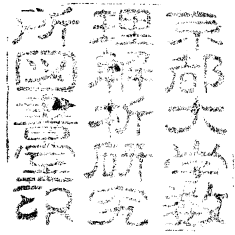 京都大学数
理解析研究
所図書印